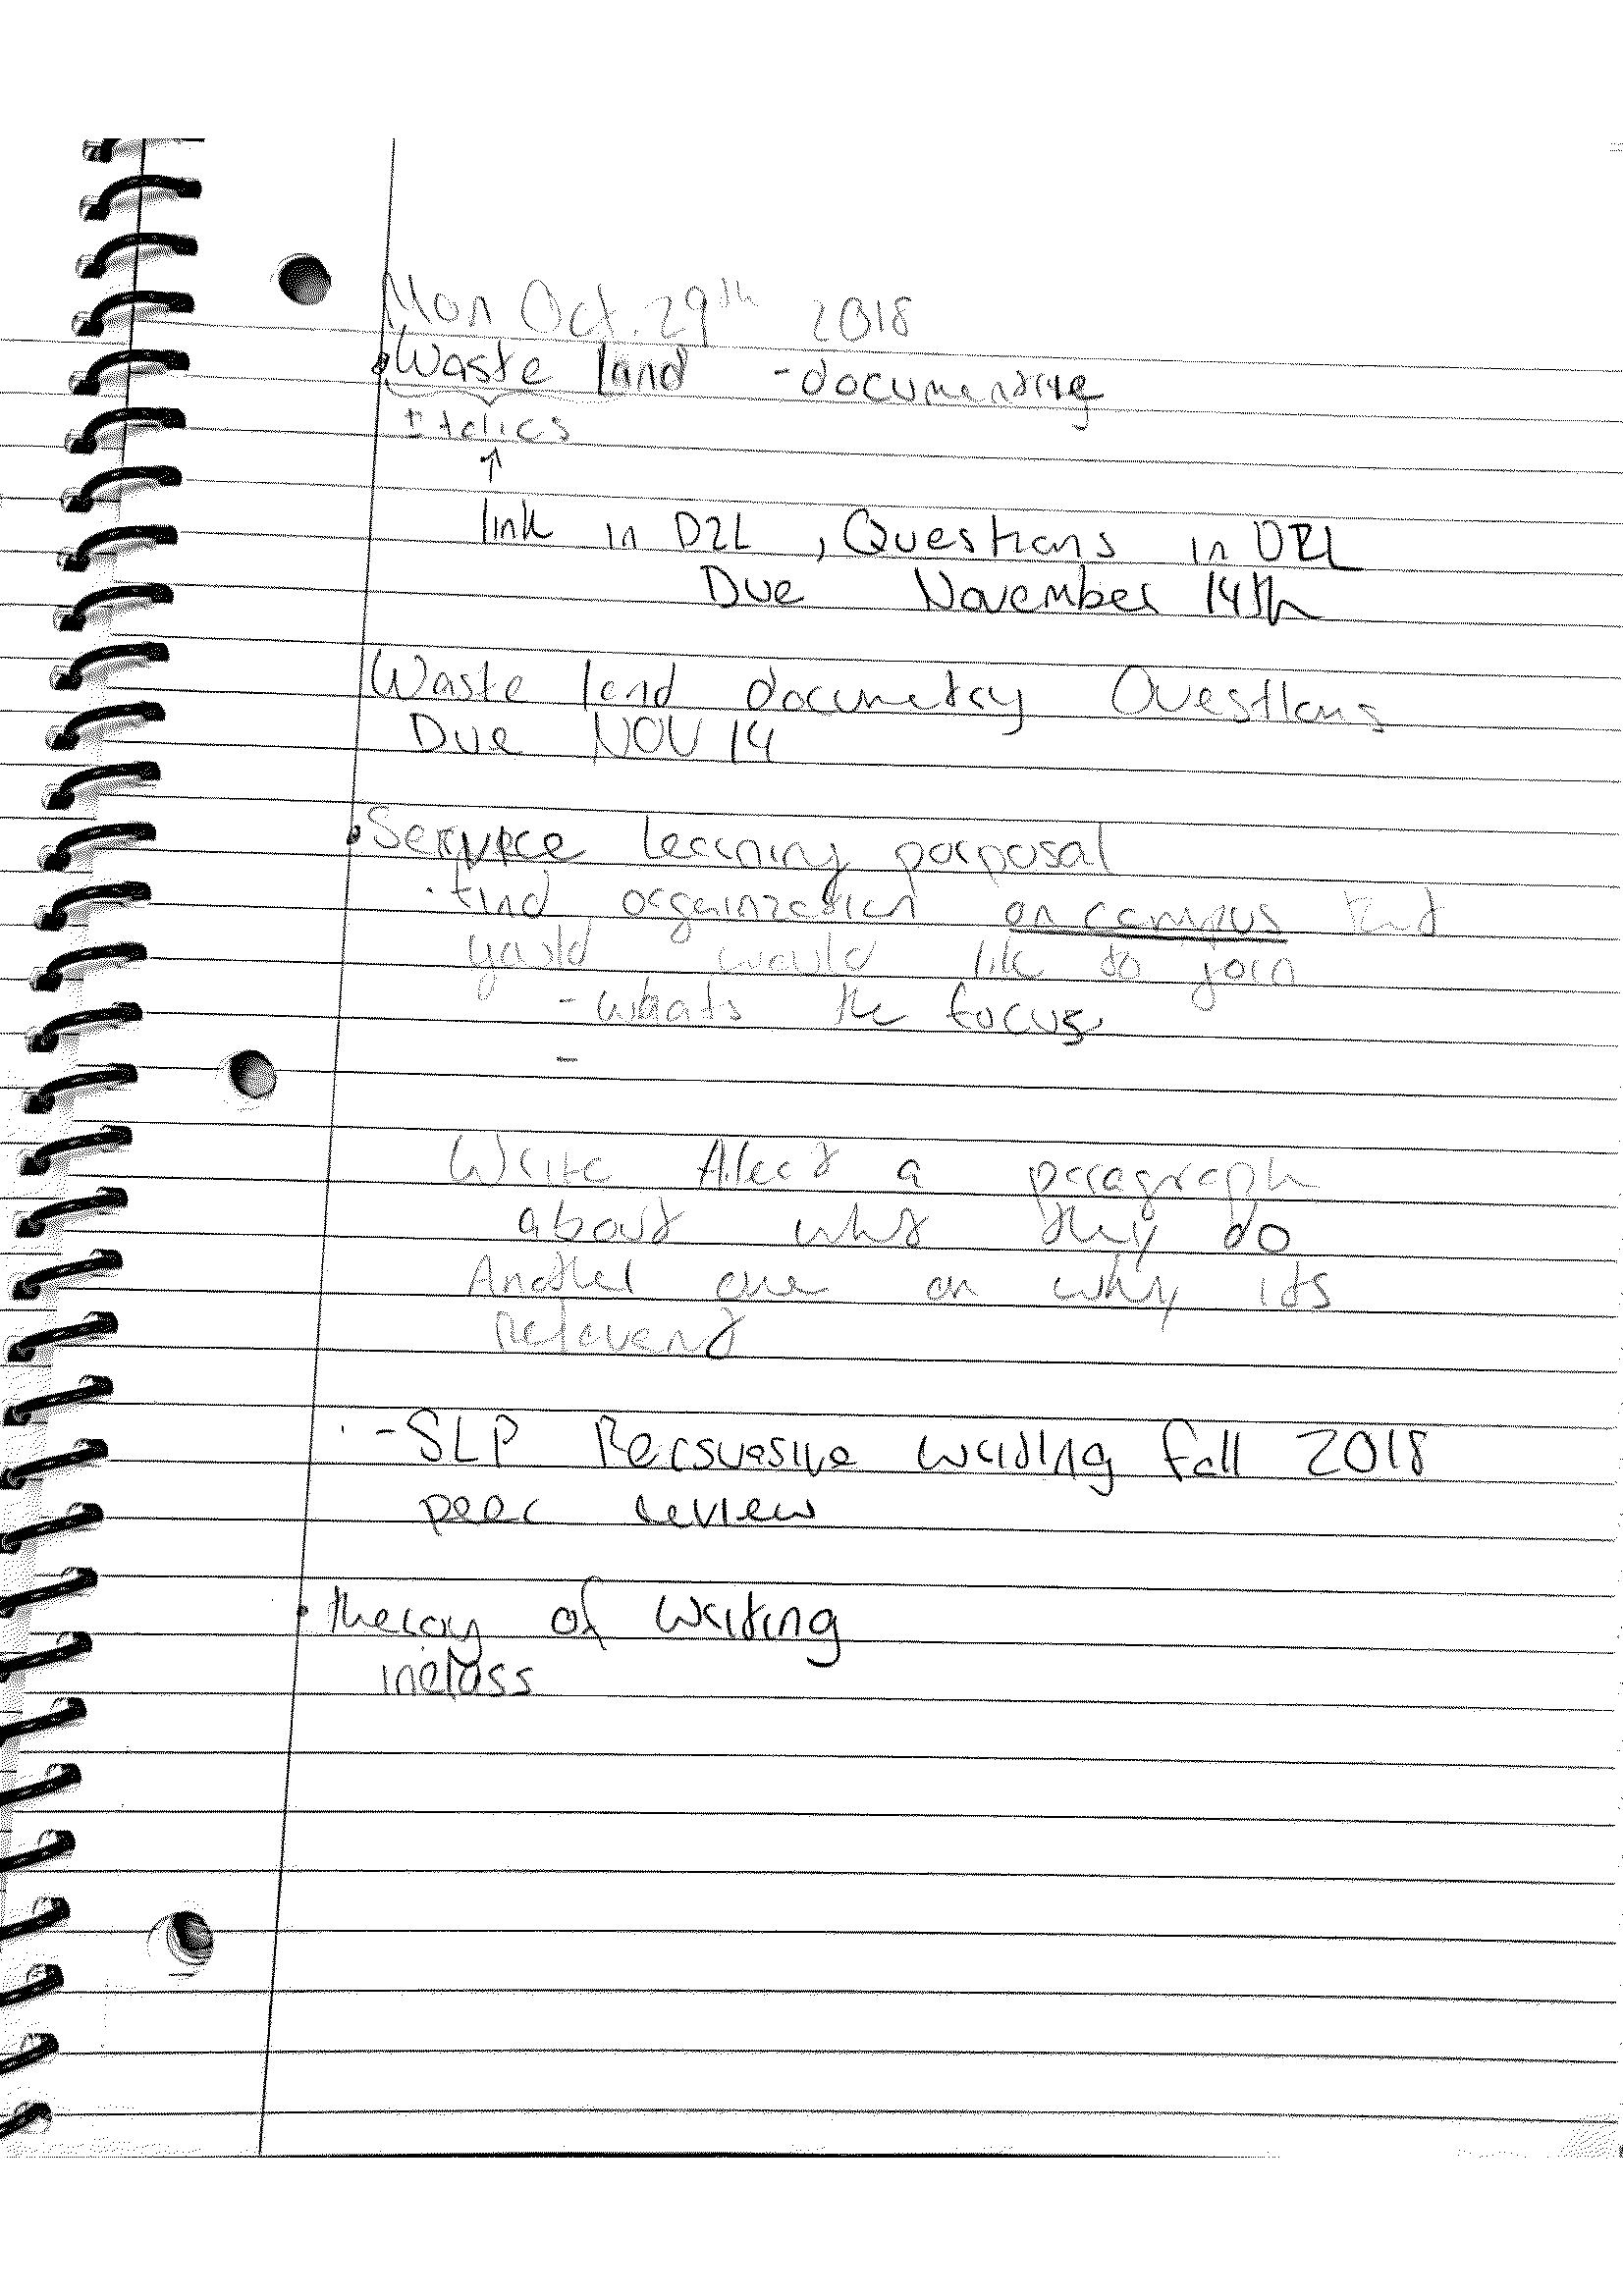 Mon Oct. 29th 2018
• Waste land - documentary
Italics
↑
link in D2L , Questions in D2L
Due November 14th
Waste land documetry Questions
Due NOV 14
• Service learning porposal
· find orgainzation on campus that
would like to join
- whats the focus
-
Write Alec? a paragraph
about what they do
Another one on why its
Relevent
· - SLP Persuasive writing fall 2018
peer review
• theroy of writing
inclass